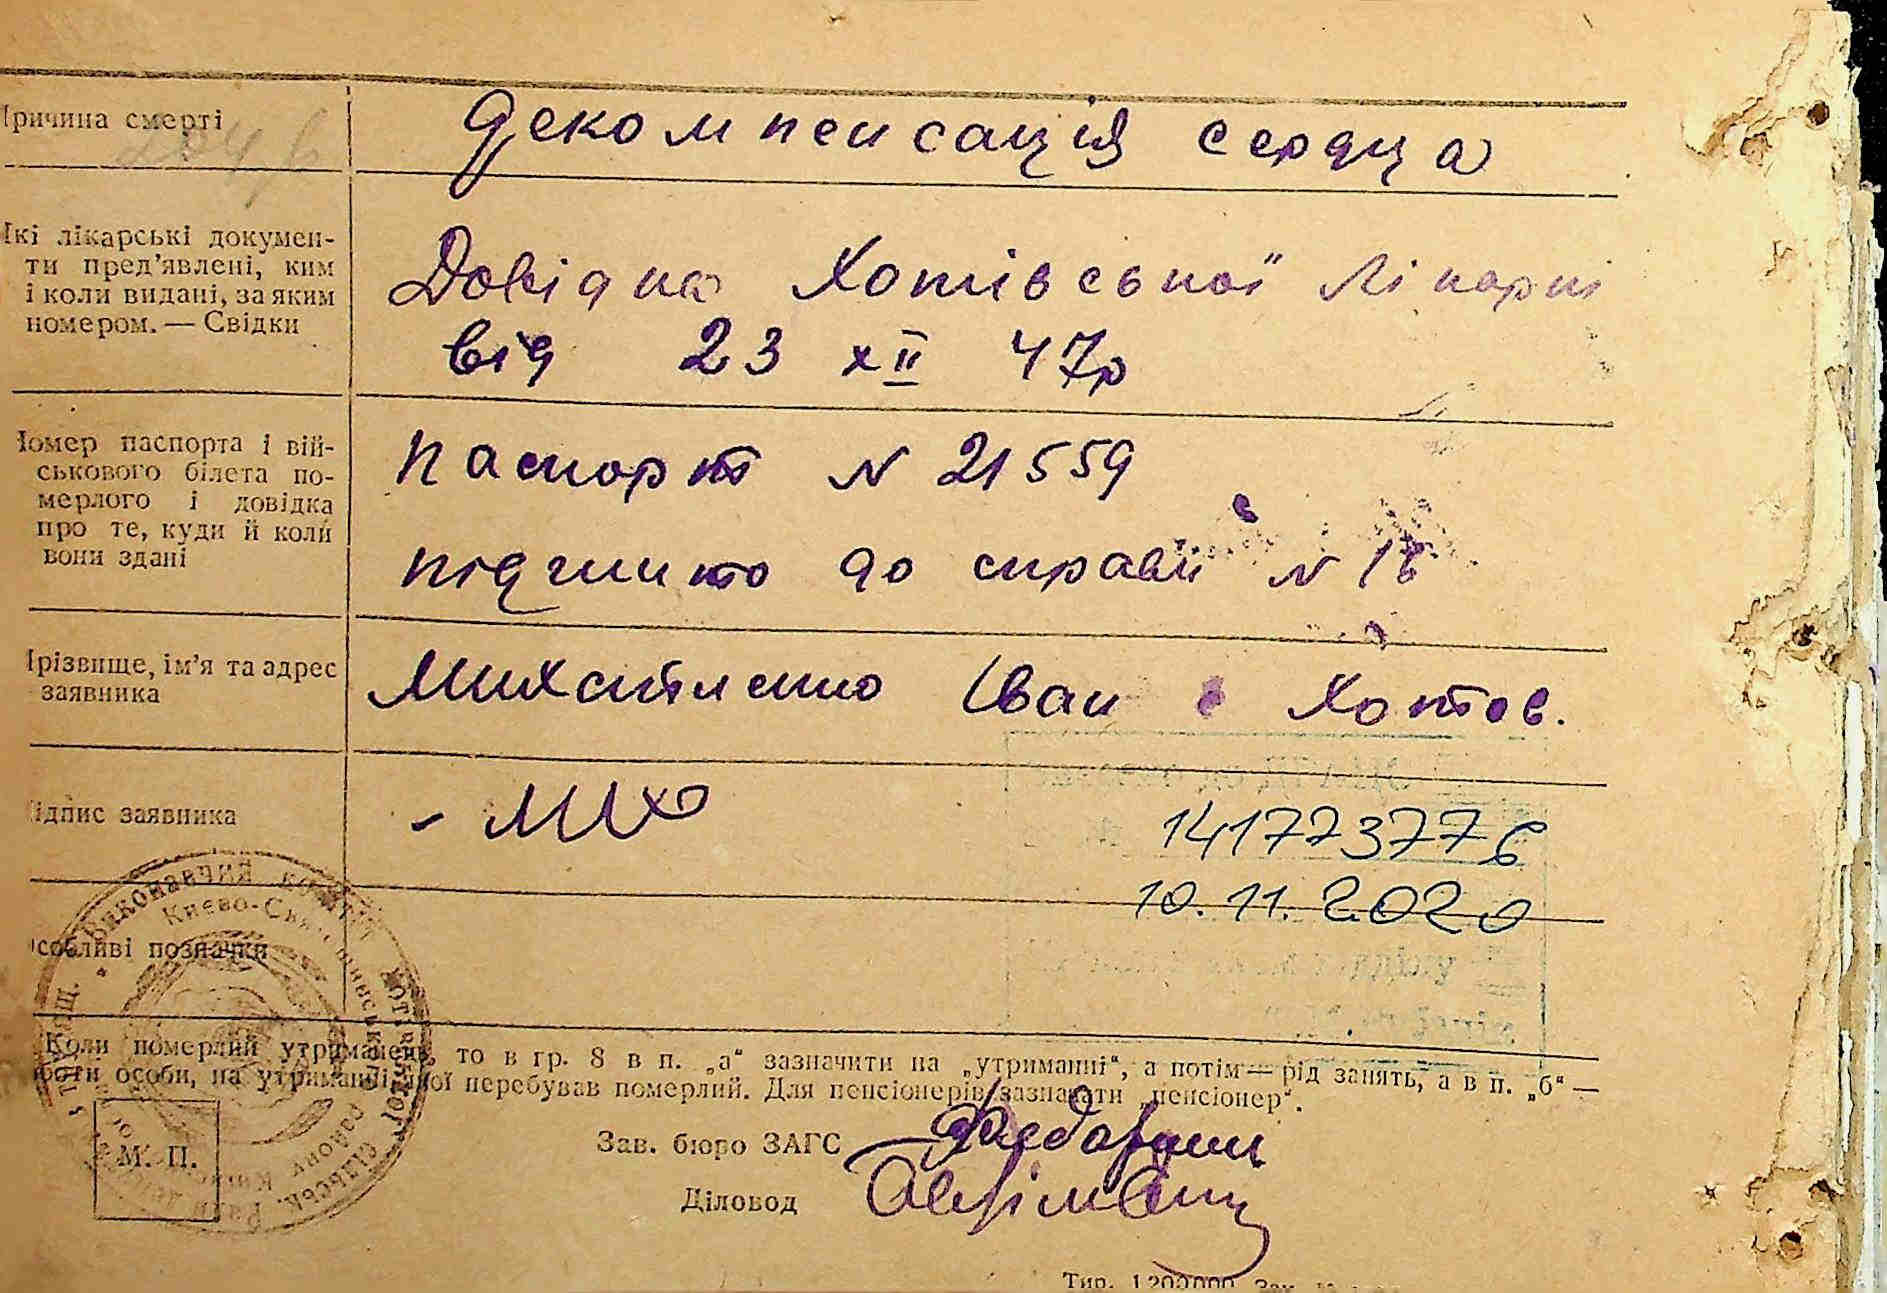 Причина смерті
декомпенсація серця
Які лікарські докумен-
ти пред'явлені, ким
і коли видані, за яким
номером. — Свідки
Довідка Хотівської лікарні
від 23 XII 47р
Номер паспорта і вій-
ськового білета по-
мерлого і довідка
про те, куди й коли
вони здані
Паспорт N 21559
підшито до справи N 1б
Прізвище, ім'я та адрес
заявника
Іван Хотов.
Підпис заявника
- Мих
141773776
10.11.2020
Особливі позначки
Коли померлий утриманець, то в гр. 8 в п. „а“ зазначити на „утриманні“, а потім — рід занять, а в п. „б“ —
роботи особи, на утриманні якої перебував померлий. Для пенсіонерів зазначати „пенсіонер“.
Зав. бюро ЗАГС
Діловод
М. П.
Виконавчий комітет
Києво-Святошинськ
району
Тир. 1200000 Зак.